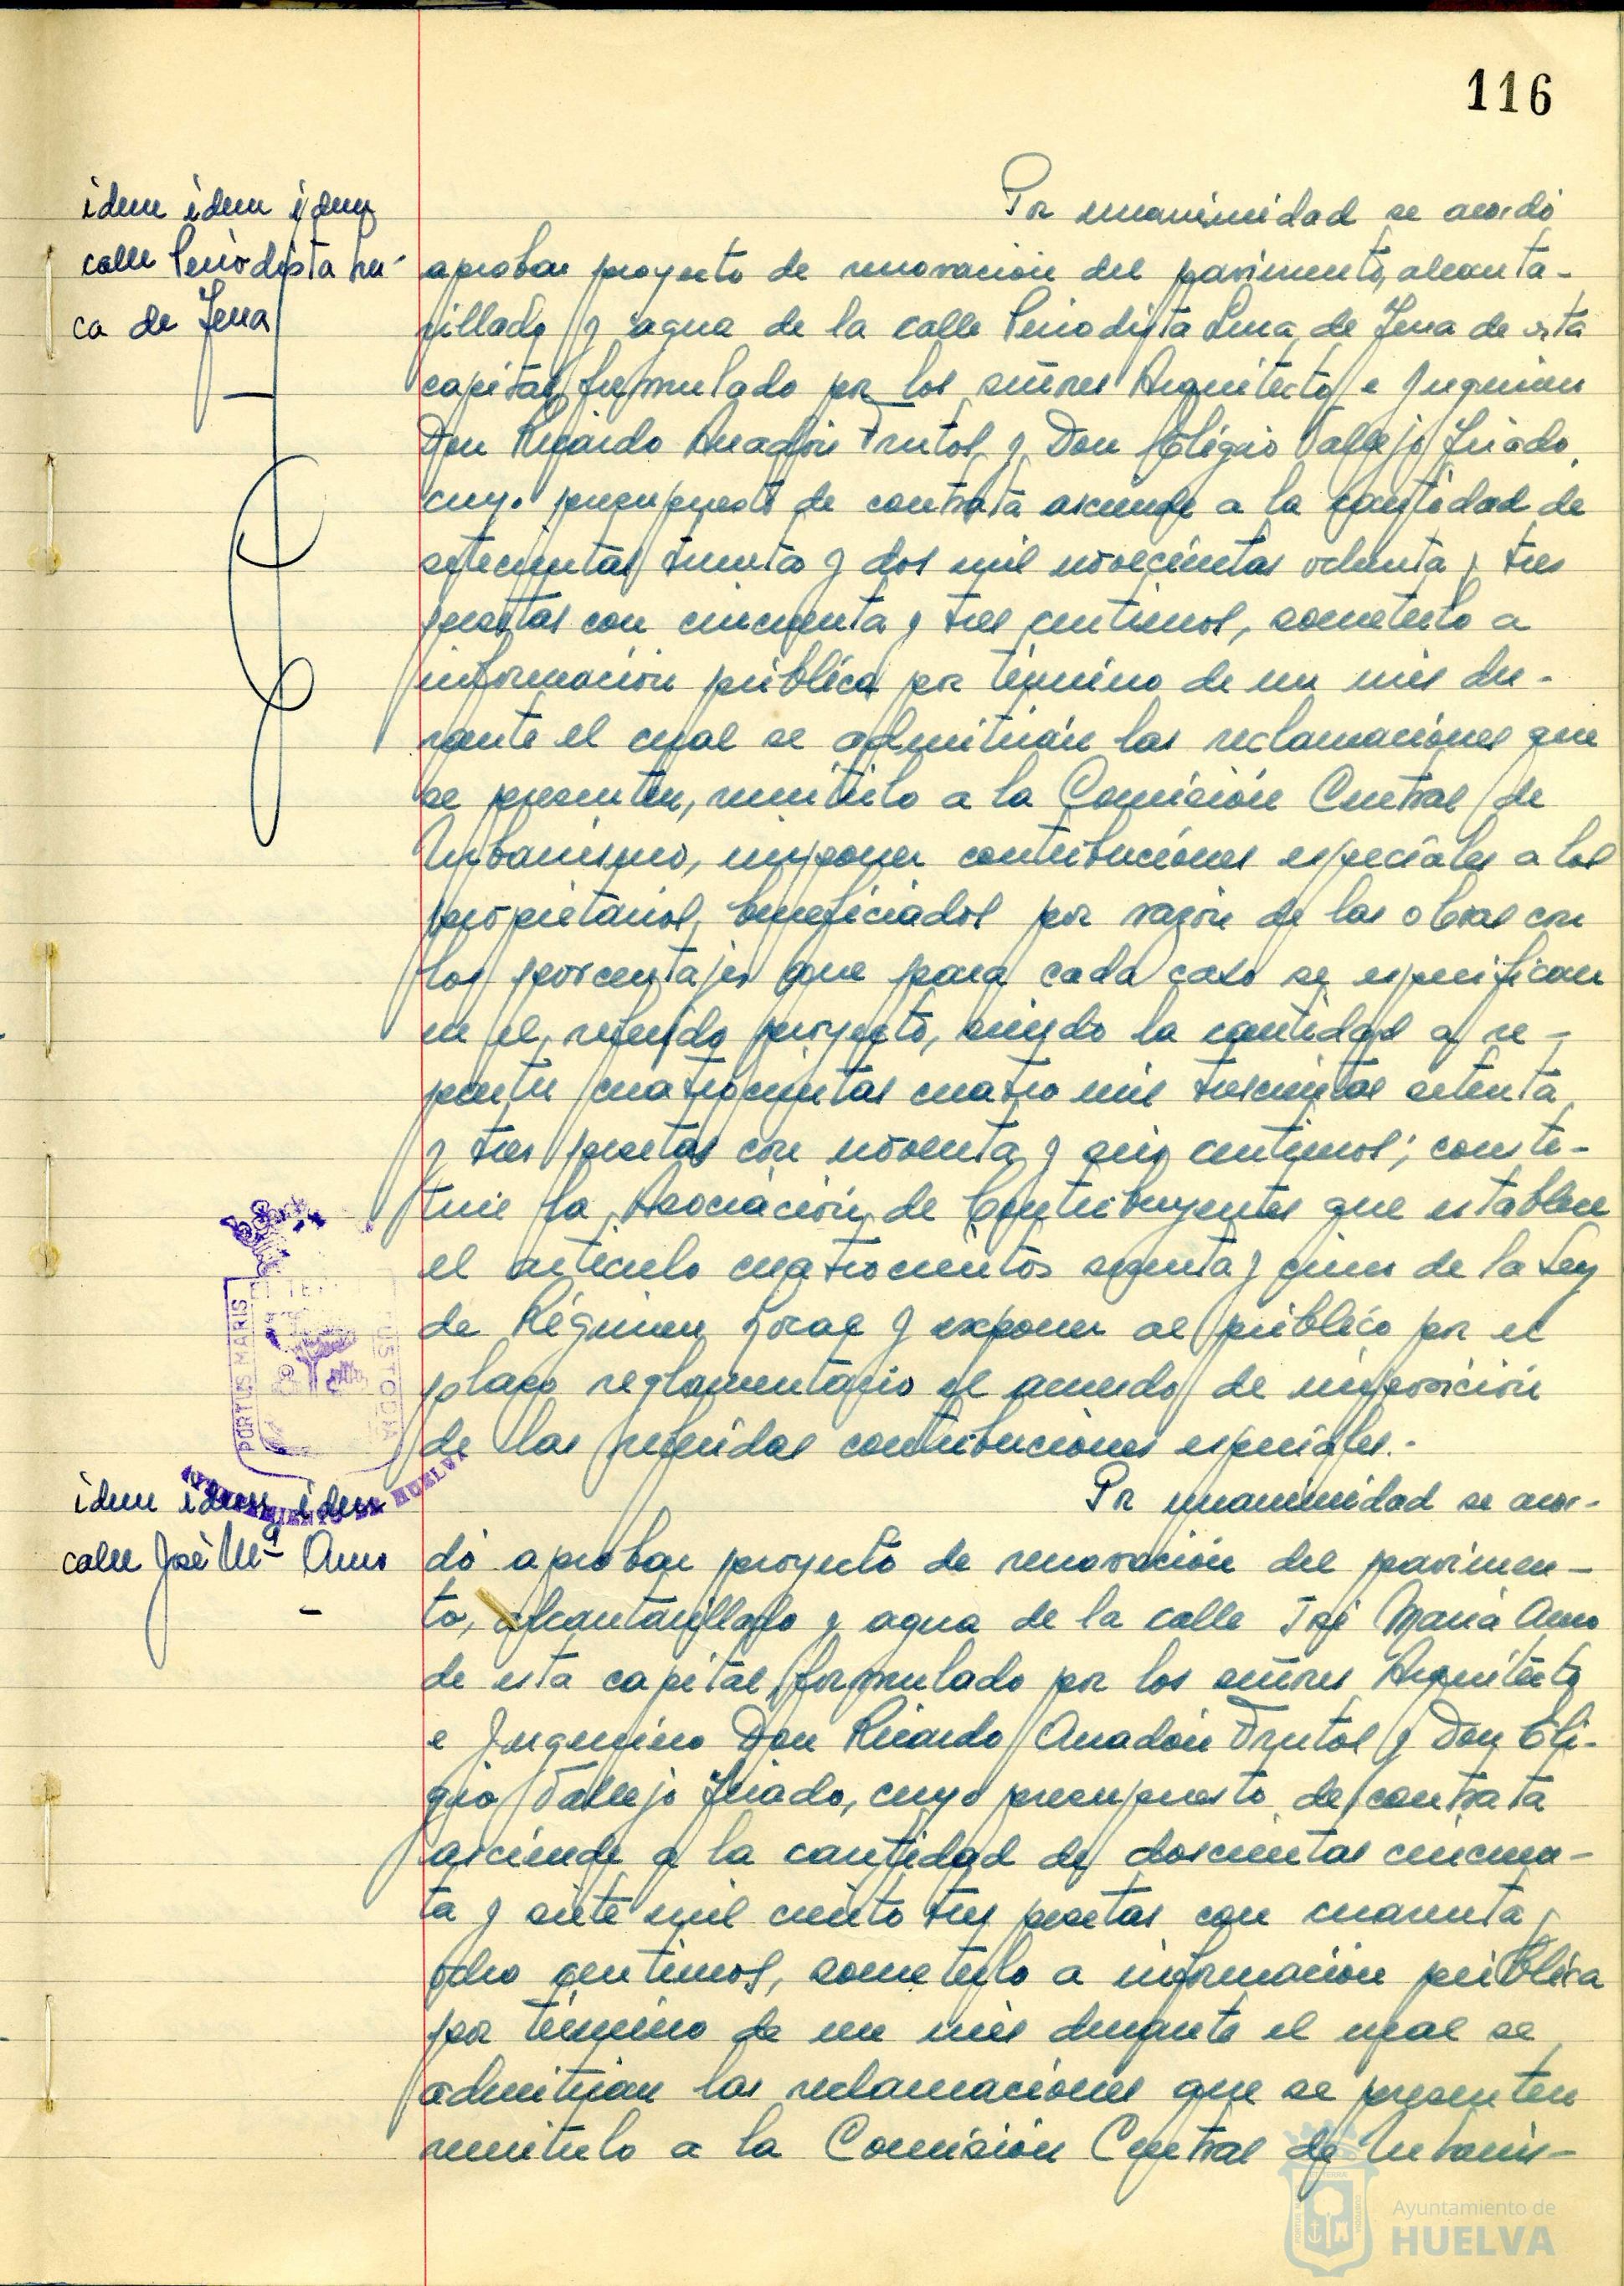 116
idem idem idem
calle Periodista Lu-
ca de Tena
Por unanimidad se acordó
aprobar proyecto de renovación del pavimento, alcanta-
rillado y agua de la calle Periodista Luca de Tena de esta
capital, formulado por los señores Arquitecto e Ingeniero
Don Ricardo Anadón Frutos y Don Eligio Vallejo Triado,
cuyo presupuesto de contrata asciende a la cantidad de
setecientas treinta y dos mil novecientas ochenta y tres
pesetas con cincuenta y tres centimos, someterlo a
información pública por término de un mes du-
rante el cual se admitirán las reclamaciones que
se presenten, remitirlo a la Comisión Central de
Urbanismo, imponer contribuciones especiales a los
propietarios beneficiados por razón de las obras con
los porcentajes que para cada caso se especifican
en el referido proyecto, siendo la cantidad a re-
partir cuatrocientas cuatro mil trescientas setenta
y tres pesetas con noventa y seis centimos; consti-
tuir la Asociación de Contribuyentes que establece
el articulo cuatrocientos sesenta y cinco de la Ley
de Régimen Local y exponer al público por el
plazo reglamentario el acuerdo de imposición
de las referidas contribuciones especiales.-
PORTUS MARIS
CUSTODIA
AYUNTAMIENTO DE HUELVA
idem idem idem
calle José Mª Amo
Por unanimidad se acor-
dó aprobar proyecto de renovación del pavimen-
to, alcantarillado y agua de la calle José María Amo
de esta capital, formulado por los señores Arquitecto
e Ingeniero Don Ricardo Anadón Frutos y Don Eli-
gio Vallejo Triado, cuyo presupuesto de contrata
asciende a la cantidad de doscientas cincuen-
ta y siete mil ciento tres pesetas con cuarenta y
ocho centimos, someterlo a información pública
por término de un mes durante el cual se
admitirian las reclamaciones que se presenten
remitirlo a la Comisión Central de Urbanis-
Ayuntamiento de
HUELVA